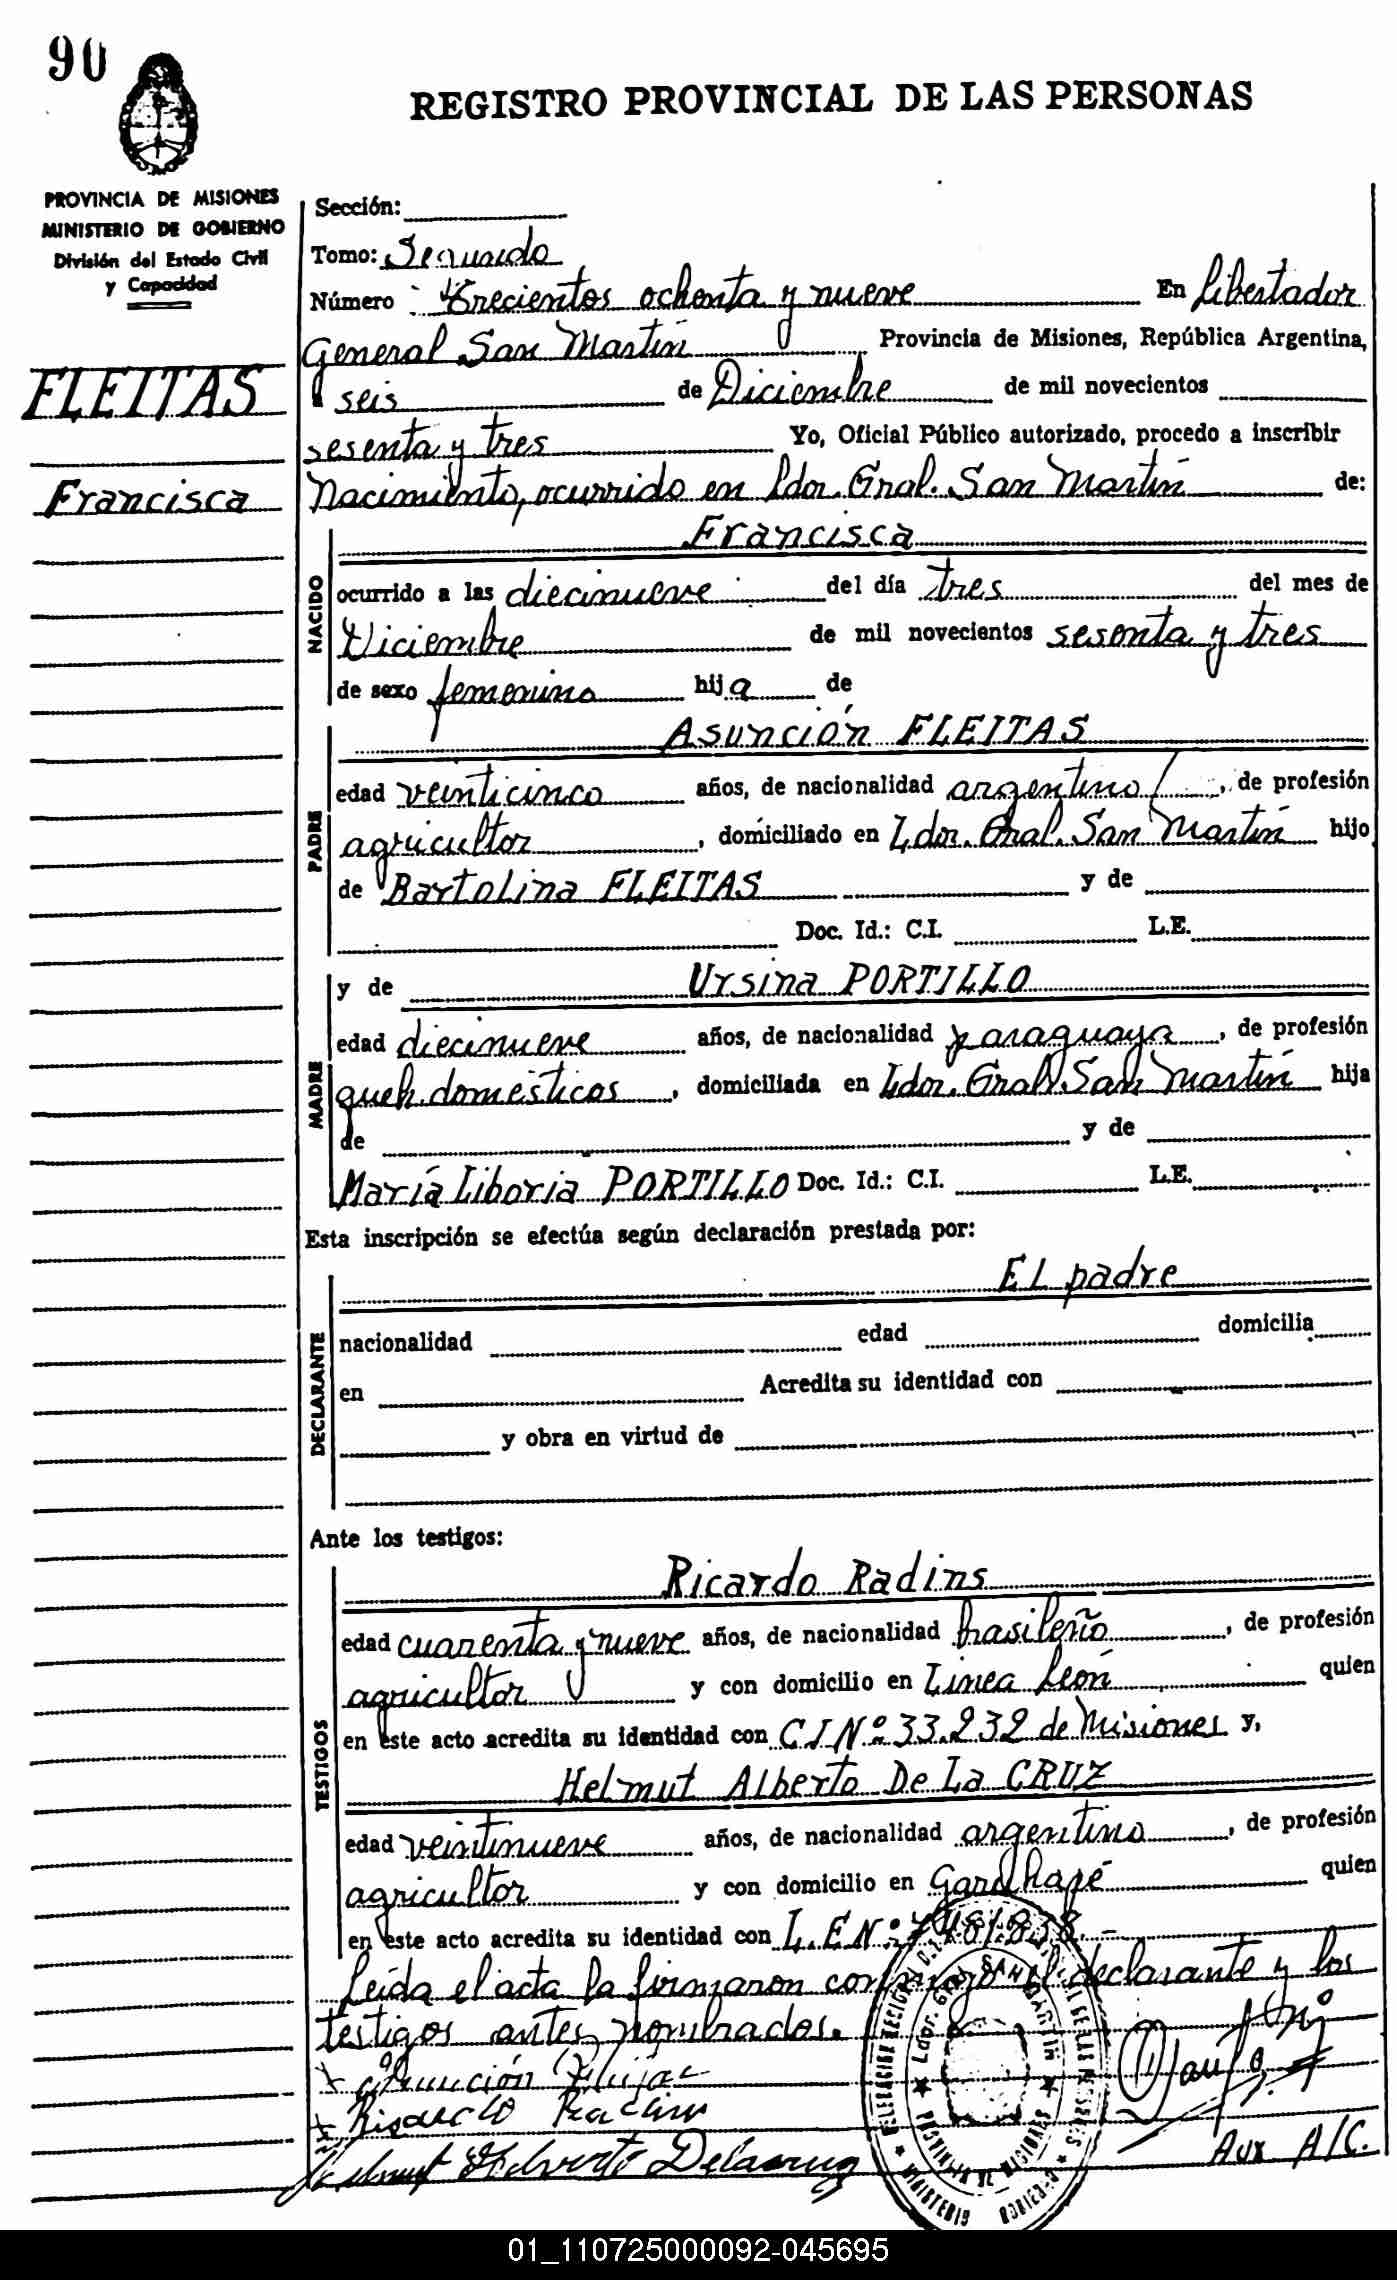 90
REGISTRO PROVINCIAL DE LAS PERSONAS
PROVINCIA DE MISIONES
MINISTERIO DE GOBIERNO
División del Estado Civil
y Capacidad
FLEITAS
Francisca
Sección:
Tomo: Segundo
Número Trecientos ochenta y nueve En Libertador
General San Martín Provincia de Misiones, República Argentina,
a seis de Diciembre de mil novecientos
sesenta y tres Yo, Oficial Público autorizado, procedo a inscribir
Nacimiento, ocurrido en Ldor. Gral. San Martín de:
NACIDO
Francisca
ocurrido a las diecinueve del día tres del mes de
Diciembre de mil novecientos sesenta y tres
de sexo femenino hija de
PADRE
Asunción FLEITAS
edad veinticinco años, de nacionalidad argentino, de profesión
agricultor, domiciliado en Ldor. Gral. San Martín hijo
de Bartolina FLEITAS y de
Doc. Id.: C.I. L.E.
MADRE
y de Ursina PORTILLO
edad diecinueve años, de nacionalidad paraguaya, de profesión
queh. domésticos, domiciliada en Ldor. Gral. San Martín hija
de y de
María Liboria PORTILLO Doc. Id.: C.I. L.E.
Esta inscripción se efectúa según declaración prestada por:
DECLARANTE
El padre
nacionalidad edad domicilia
en Acredita su identidad con
y obra en virtud de
Ante los testigos:
TESTIGOS
Ricardo Radins
edad cuarenta y nueve años, de nacionalidad brasileño, de profesión
agricultor y con domicilio en Linea León quien
en este acto acredita su identidad con C I Nº 33.232 de Misiones y,
Helmut Alberto De La CRUZ
edad veintinueve años, de nacionalidad argentino, de profesión
agricultor y con domicilio en Garuhapé quien
en este acto acredita su identidad con L.E Nº 7481838.-
Leída el acta la firmaron conmigo el declarante y los
testigos antes nombrados.
Asunción
Helmut Alverto Delacruz
Ldor. GRAL SAN MARTIN
PROVINCIA DE MISIONES
MINISTERIO
Aux A/C.
01_110725000092-045695